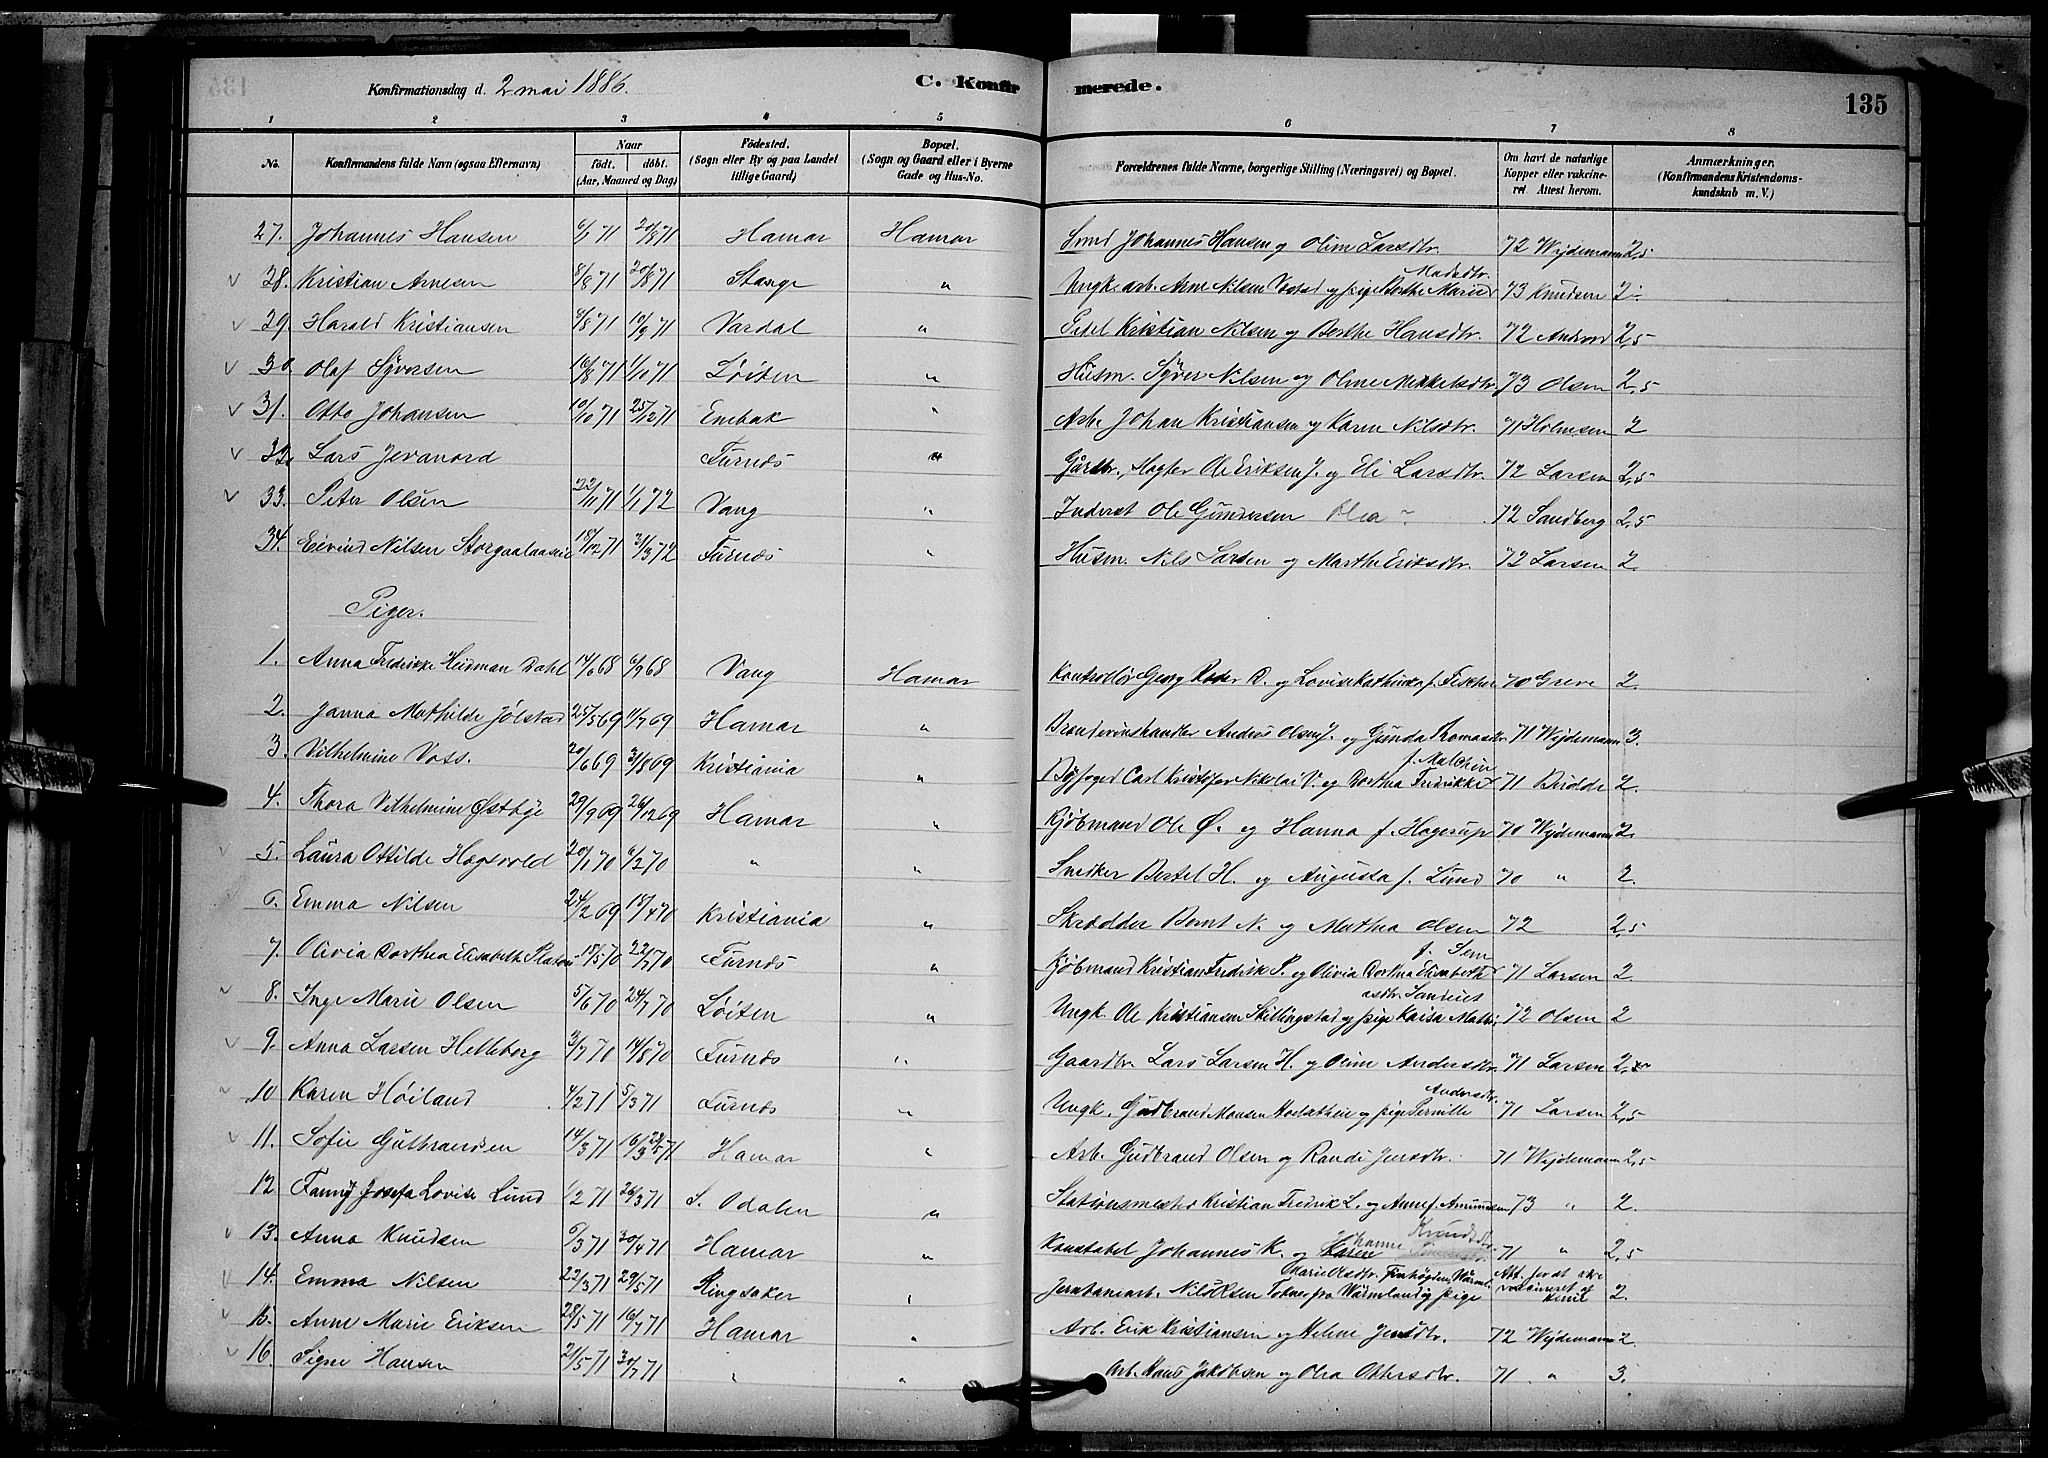 Konfirmationsdag d. 2 mai 1886.
C. Konfirmerede.
135
1 2 3 4 5 6 7 8
No. Konfirmandens fulde Navn (ogsaa Efternavn) Naar født. døbt. (Aar, Maaned og Dag) Fødested. (Sogn eller By og paa Landet tillige Gaard) Bopæl. (Sogn og Gaard eller i Byerne Gade og Hus-No. Forældrenes fulde Navne, borgerlige Stilling (Næringsvei) og Bopæl. Om havt de naturlige Kopper eller vakcineret. Attest herom. Anmærkninger. (Konfirmandens Kristendomskundskab m. V.)
27. Johannes Hansen 71 71 Hamar Hamar Smed Johannes Hansen og Oline Larsdtr. 72 Wejdemann 2,5
28. Kristian Arnesen 8/8 71 20/8 71 Stange " Ungk. arb. Arne Nilsen og pige Berthe Marie Madsdtr. 73 Knudsen 2
29. Harald Kristiansen 71 10/9 71 Vardal " Pedel Kristian Nilsen og Berthe Hansdtr. 72 2,5
30 Olaf Syversen 16/8 71 1/10 71 Løiten " Husm. Syver Nilsen og Oline Mikkelsdtr. 73 Olsen 2,5
31. Otto Johansen 10/10 71 25/12 71 Enebak " Arb. Johan Kristiansen og Karen Nilsdtr. 71 Holmsen 2
32. Lars Jevanord Furnes " Ole Eriksen J. og Eli Larsdtr. 72 Larsen 2,5
33. Peter Olsen 22/11 71 1/1 72 Vang " Inderst Ole Gundersen Olea 72 Sandberg 2,5
34. Eivind Nilsen 18/12 71 31/3 72 Furnes " Husm. Nils Larsen og Marthe Eriksdtr. 72 Larsen 2.
Piger.
1. Anna Fredrikke Heidman Dahl 14/6 68 6/9 68 Vang Hamar Kontrollør Georg D. og Lovise Kathinka f. Fischer 70 Greve 2.
2. Janna Mathilde Jølstad 25/5 69 11/7 69 Hamar " Brændevinshandler Anders Olsen J. og Gunda Thomasdtr. 71 Wejdemann 3.
3. Vilhelmine Voss. 20/6 69 3/8 69 Kristiania " Byfoged Carl Kristofer Nikolai V. og Dorthea Fredrikke f. Malthin 71 2.
4. Thora Vilhelmine Østbye 29/9 69 26/12 69 Hamar " Kjøbmand Ole Ø. og Hanna f. Hagerup 70 Wejdemann 2.
5. Laura Ottilde Hagevold 20/1 70 6/2 70 " " Snedker Bertel H. og Augusta f. Lund 70 " 2.
6. Emma Nilsen 24/2 69 18/4 70 Kristiania " Skrædder Bernt N. og Mathea Olsen 72 2,5
7. Olivia Dorthea Elisabeth Platou 18/5 70 22/7 70 Furnes " Kjøbmand Kristian Fredrik P. og Olivia Dorthea Elisabeth f. Sem 71 Larsen 2
8. Inge Marie Olsen 5/6 70 24/7 70 Løiten " Ungk. Ole Kristiansen Skillingstad og pige Kaisa 72 Olsen 2
9. Anna Larsen Helleborg 3/7 70 14/8 70 Furnes " Gaardbr. Lars Larsen H. og Oline Andersdtr. 71 Larsen 2,
10 Karen Høiland 4/2 71 5/3 71 Furnes " Ungk. Gudbrand Monsen og pige Pernille Andersdtr. 71 Larsen 2,5
11. Sofie Gutbrandsen 14/3 71 71 Hamar " Arb. Gudbrand Olsen og Randi Jensdtr. 71 Wejdemann 2,5
12 Fanny Josefa Lovise Lund 1/2 71 26/3 71 S. Odalen " Stationsmester Kristian Fredrik L. og Anne f. Amundsen 73 " 2.
13. Anna Knudsen 6/3 71 30/4 71 Hamar " Konstabel Johannes K. og Johanne Knudsdtr. 71 " 2,5
14. Emma Nilsen 22/3 71 29/5 71 Ringsaker " Nils Olsen fra Wärmland og pige Marie Olsdtr. 2.
15. Anne Marie Eriksen 28/5 71 16/7 71 Hamar " Arb. Erik Kristiansen og Helene Jensdtr. 72 Wejdemann 2
16. Signe Hansen 21/5 71 30/7 71 " " Arb. Hans Jakobsen og Olea Ottersdtr. 71 " 3.